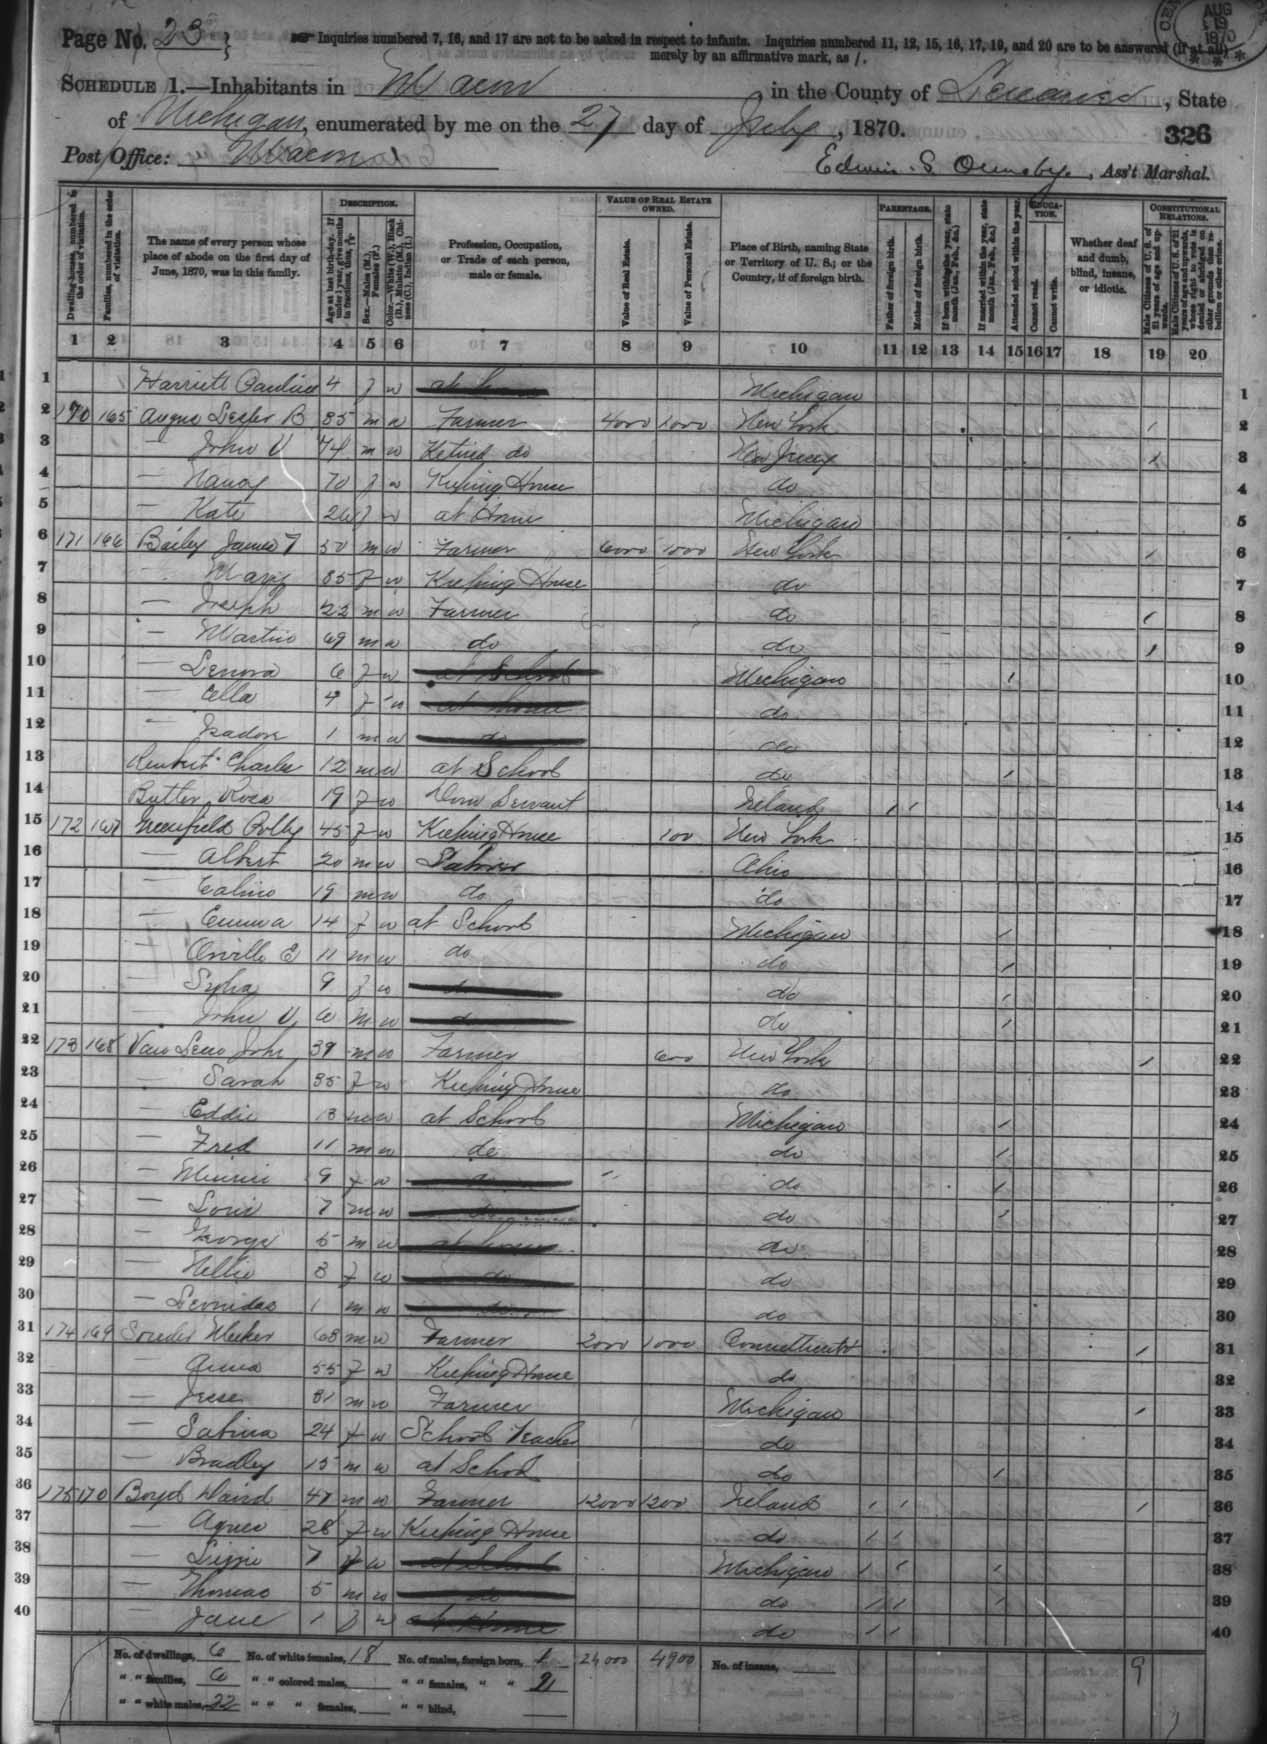 Page No. 23
Inquiries numbered 7, 16, and 17 are not to be asked in respect to infants. Inquiries numbered 11, 12, 15, 16, 17, 19, and 20 are to be answered (if at all)
merely by an affirmative mark, as /.
AUG 19 1870
SCHEDULE 1.—Inhabitants in Macon in the County of Lenawee, State
of Michigan, enumerated by me on the 27 day of July, 1870.
326
Post Office: Macon
Edwin S Ormsby, Ass't Marshal.
Dwelling-houses, numbered in the order of visitation.
Families, numbered in the order of visitation.
The name of every person whose place of abode on the first day of June, 1870, was in this family.
DESCRIPTION.
Age at last birth-day. If under 1 year, give months in fractions, thus, 3/12.
Sex.—Males (M.), Females (F.)
Color.—White (W.), Black (B.), Mulatto (M.), Chinese (C.), Indian (I.)
Profession, Occupation, or Trade of each person, male or female.
VALUE OF REAL ESTATE OWNED.
Value of Real Estate.
Value of Personal Estate.
Place of Birth, naming State or Territory of U. S.; or the Country, if of foreign birth.
PARENTAGE.
Father of foreign birth.
Mother of foreign birth.
If born within the year, state month (Jan., Feb., &c.)
If married within the year, state month (Jan., Feb., &c.)
EDUCATION.
Attended school within the year.
Cannot read.
Cannot write.
Whether deaf and dumb, blind, insane, or idiotic.
CONSTITUTIONAL RELATIONS.
Male Citizens of U. S. of 21 years of age and upwards.
Male Citizens of U. S. of 21 years of age and upwards, whose right to vote is denied or abridged on other grounds than rebellion or other crime.
1 2 3 4 5 6 7 8 9 10 11 12 13 14 15 16 17 18 19 20
1 Harriett Pauline 4 f w Michigan 1
2 170 165 B 35 m w Farmer 4000 1000 New York / 2
3 — John V 74 m w Retired do New Jersey / 3
4 — Nancy 70 f w Keeping House do 4
5 — Kate 26 f w at Home Michigan 5
6 171 166 Bailey James T 50 m w Farmer 6000 1000 New York / 6
7 — Mary 35 f w Keeping House do 7
8 — Joseph 22 m w Farmer do / 8
9 — Martin 69 m w do do / 9
10 — Lenora 6 f w at School Michigan / 10
11 — Ella 4 f w at home do 11
12 — Isadore 1 m w do do 12
13 Charles 12 m w at School do / 13
14 Butler Rosa 19 f w Dom Servant Ireland / / 14
15 172 167 Greenfield Polly 45 f w Keeping House 100 New York 15
16 — Albert 20 m w Laborer Ohio 16
17 — Calvin 19 m w do do 17
18 — Emma 14 f w at School Michigan / 18
19 — Orville E 11 m w do do / 19
20 — 9 f w do do / 20
21 — John V 6 m w do do / 21
22 173 168 John 39 m w Farmer 600 New York / 22
23 — Sarah 35 f w Keeping House do 23
24 — Eddie 13 m w at School Michigan / 24
25 — Fred 11 m w do do / 25
26 — Minnie 9 f w do do / 26
27 — 7 m w do do / 27
28 — George 5 m w at home do 28
29 — Nellie 3 f w do do 29
30 — Leonidas 1 m w do do 30
31 174 169 Meeker 68 m w Farmer 2000 1000 Connecticut / 31
32 — Anna 55 f w Keeping House do 32
33 — Jesse 31 m w Farmer Michigan / 33
34 — Sabina 24 f w School Teacher do 34
35 — Bradley 15 m w at School do / 35
36 175 170 Boyd David 47 m w Farmer 12000 1200 Ireland / / / 36
37 — Agnes 28 f w Keeping House do / / 37
38 — Lizzie 7 f w at School Michigan / / / 38
39 — Thomas 5 m w do do / / / 39
40 — Jane 1 f w at Home do / / 40
No. of dwellings, 6 No. of white females, 18 No. of males, foreign born, 1 24000 4900 No. of insane, 9
" " families, 6 " " colored males, " " females, " " 2
" " white males, 22 " " " females, " " blind,